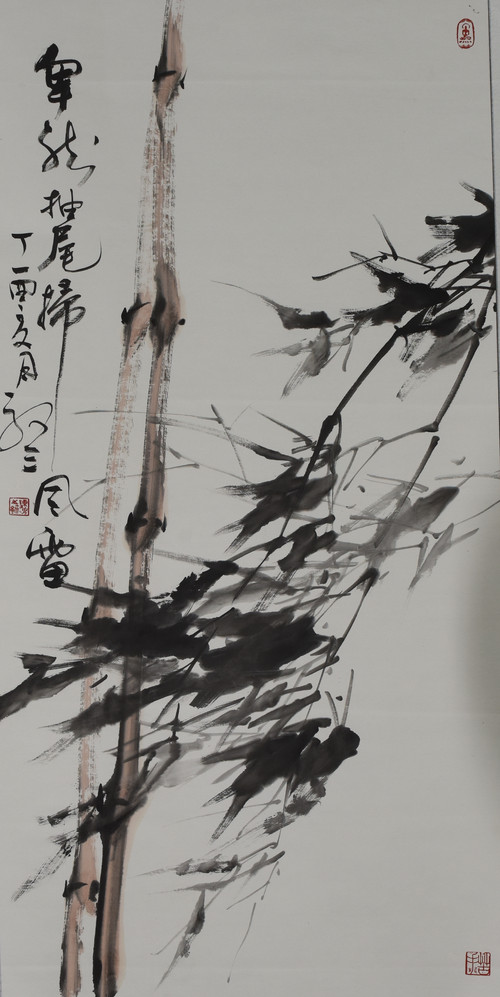 羣龙抽尾掃风雷
丁酉夏月